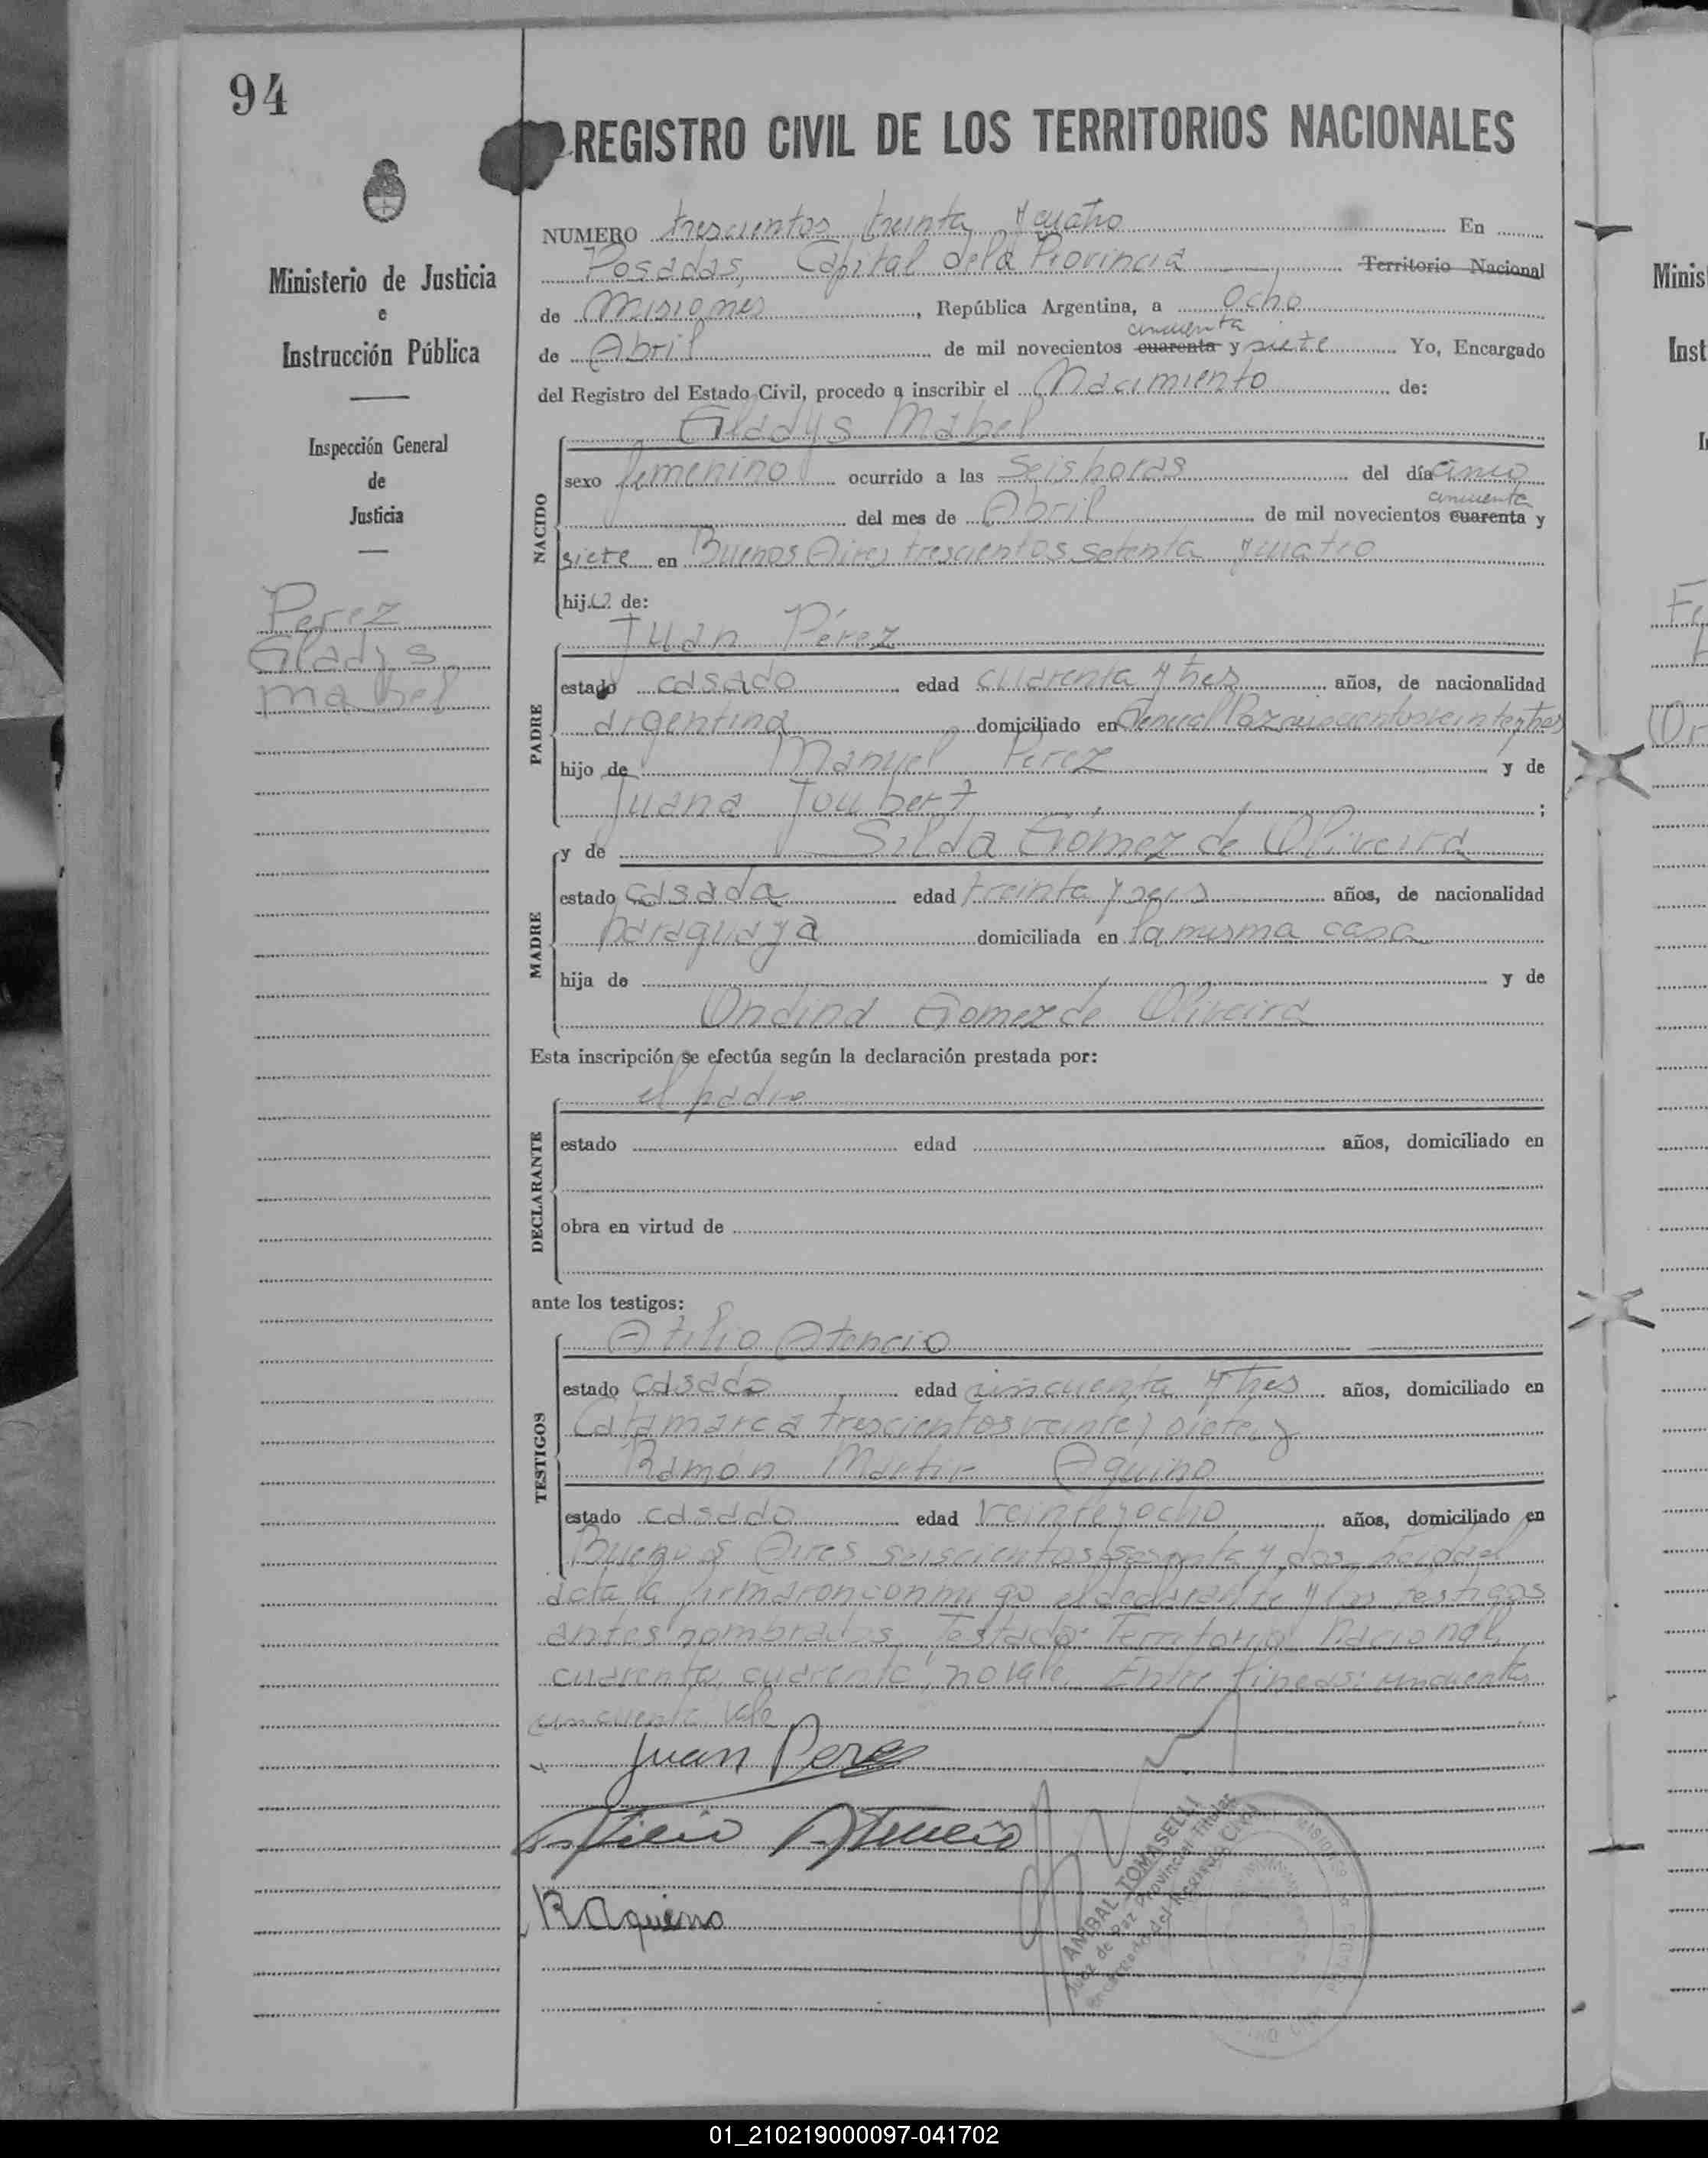 94
REGISTRO CIVIL DE LOS TERRITORIOS NACIONALES
Ministerio de Justicia
e
Instrucción Pública
Inspección General
de
Justicia
Perez
Gladys
Mabel
NUMERO trescientos treinta y cuatro En
Posadas, Capital de la Provincia Territorio Nacional
de Misiones, República Argentina, a Ocho
cincuenta
de Abril de mil novecientos cuarenta y siete Yo, Encargado
del Registro del Estado Civil, procedo a inscribir el Nacimiento de:
NACIDO
Gladys Mabel
sexo femenino ocurrido a las seis horas del día cinco
cincuenta
del mes de Abril de mil novecientos cuarenta y
siete en Buenos Aires trescientos setenta y cuatro
hija de:
PADRE
Juan Pérez
estado casado edad cuarenta y tres años, de nacionalidad
argentina domiciliado en General Paz
hijo de Manuel Perez y de
Juana Joubert;
MADRE
y de Silda Gómez de Oliveira
estado casada edad treinta y seis años, de nacionalidad
paraguaya domiciliada en la misma casa
hija de y de
Ondina Gomez de Oliveira
Esta inscripción se efectúa según la declaración prestada por:
DECLARANTE
el padre
estado edad años, domiciliado en
obra en virtud de
ante los testigos:
TESTIGOS
Atilio Atencio
estado casado edad cincuenta y tres años, domiciliado en
Catamarca trescientos veinte y siete y
Ramón Martir Aquino
estado casado edad veinte y ocho años, domiciliado en
Buenos Aires seiscientos sesenta y dos. Leida el
acta la firmaron conmigo el declarante y los testigos
antes nombrados. Testado: Territorio Nacional,
cuarenta, cuarenta, no vale. Entre lineas: cincuenta
cincuenta vale
Juan Perez
Atilio Atencio
R Aquino
ANIBAL TOMASELLI
Juez de Paz Provincial Titular
Encargado del Registro Civil
MISIONES
Minis
Inst
01_210219000097-041702